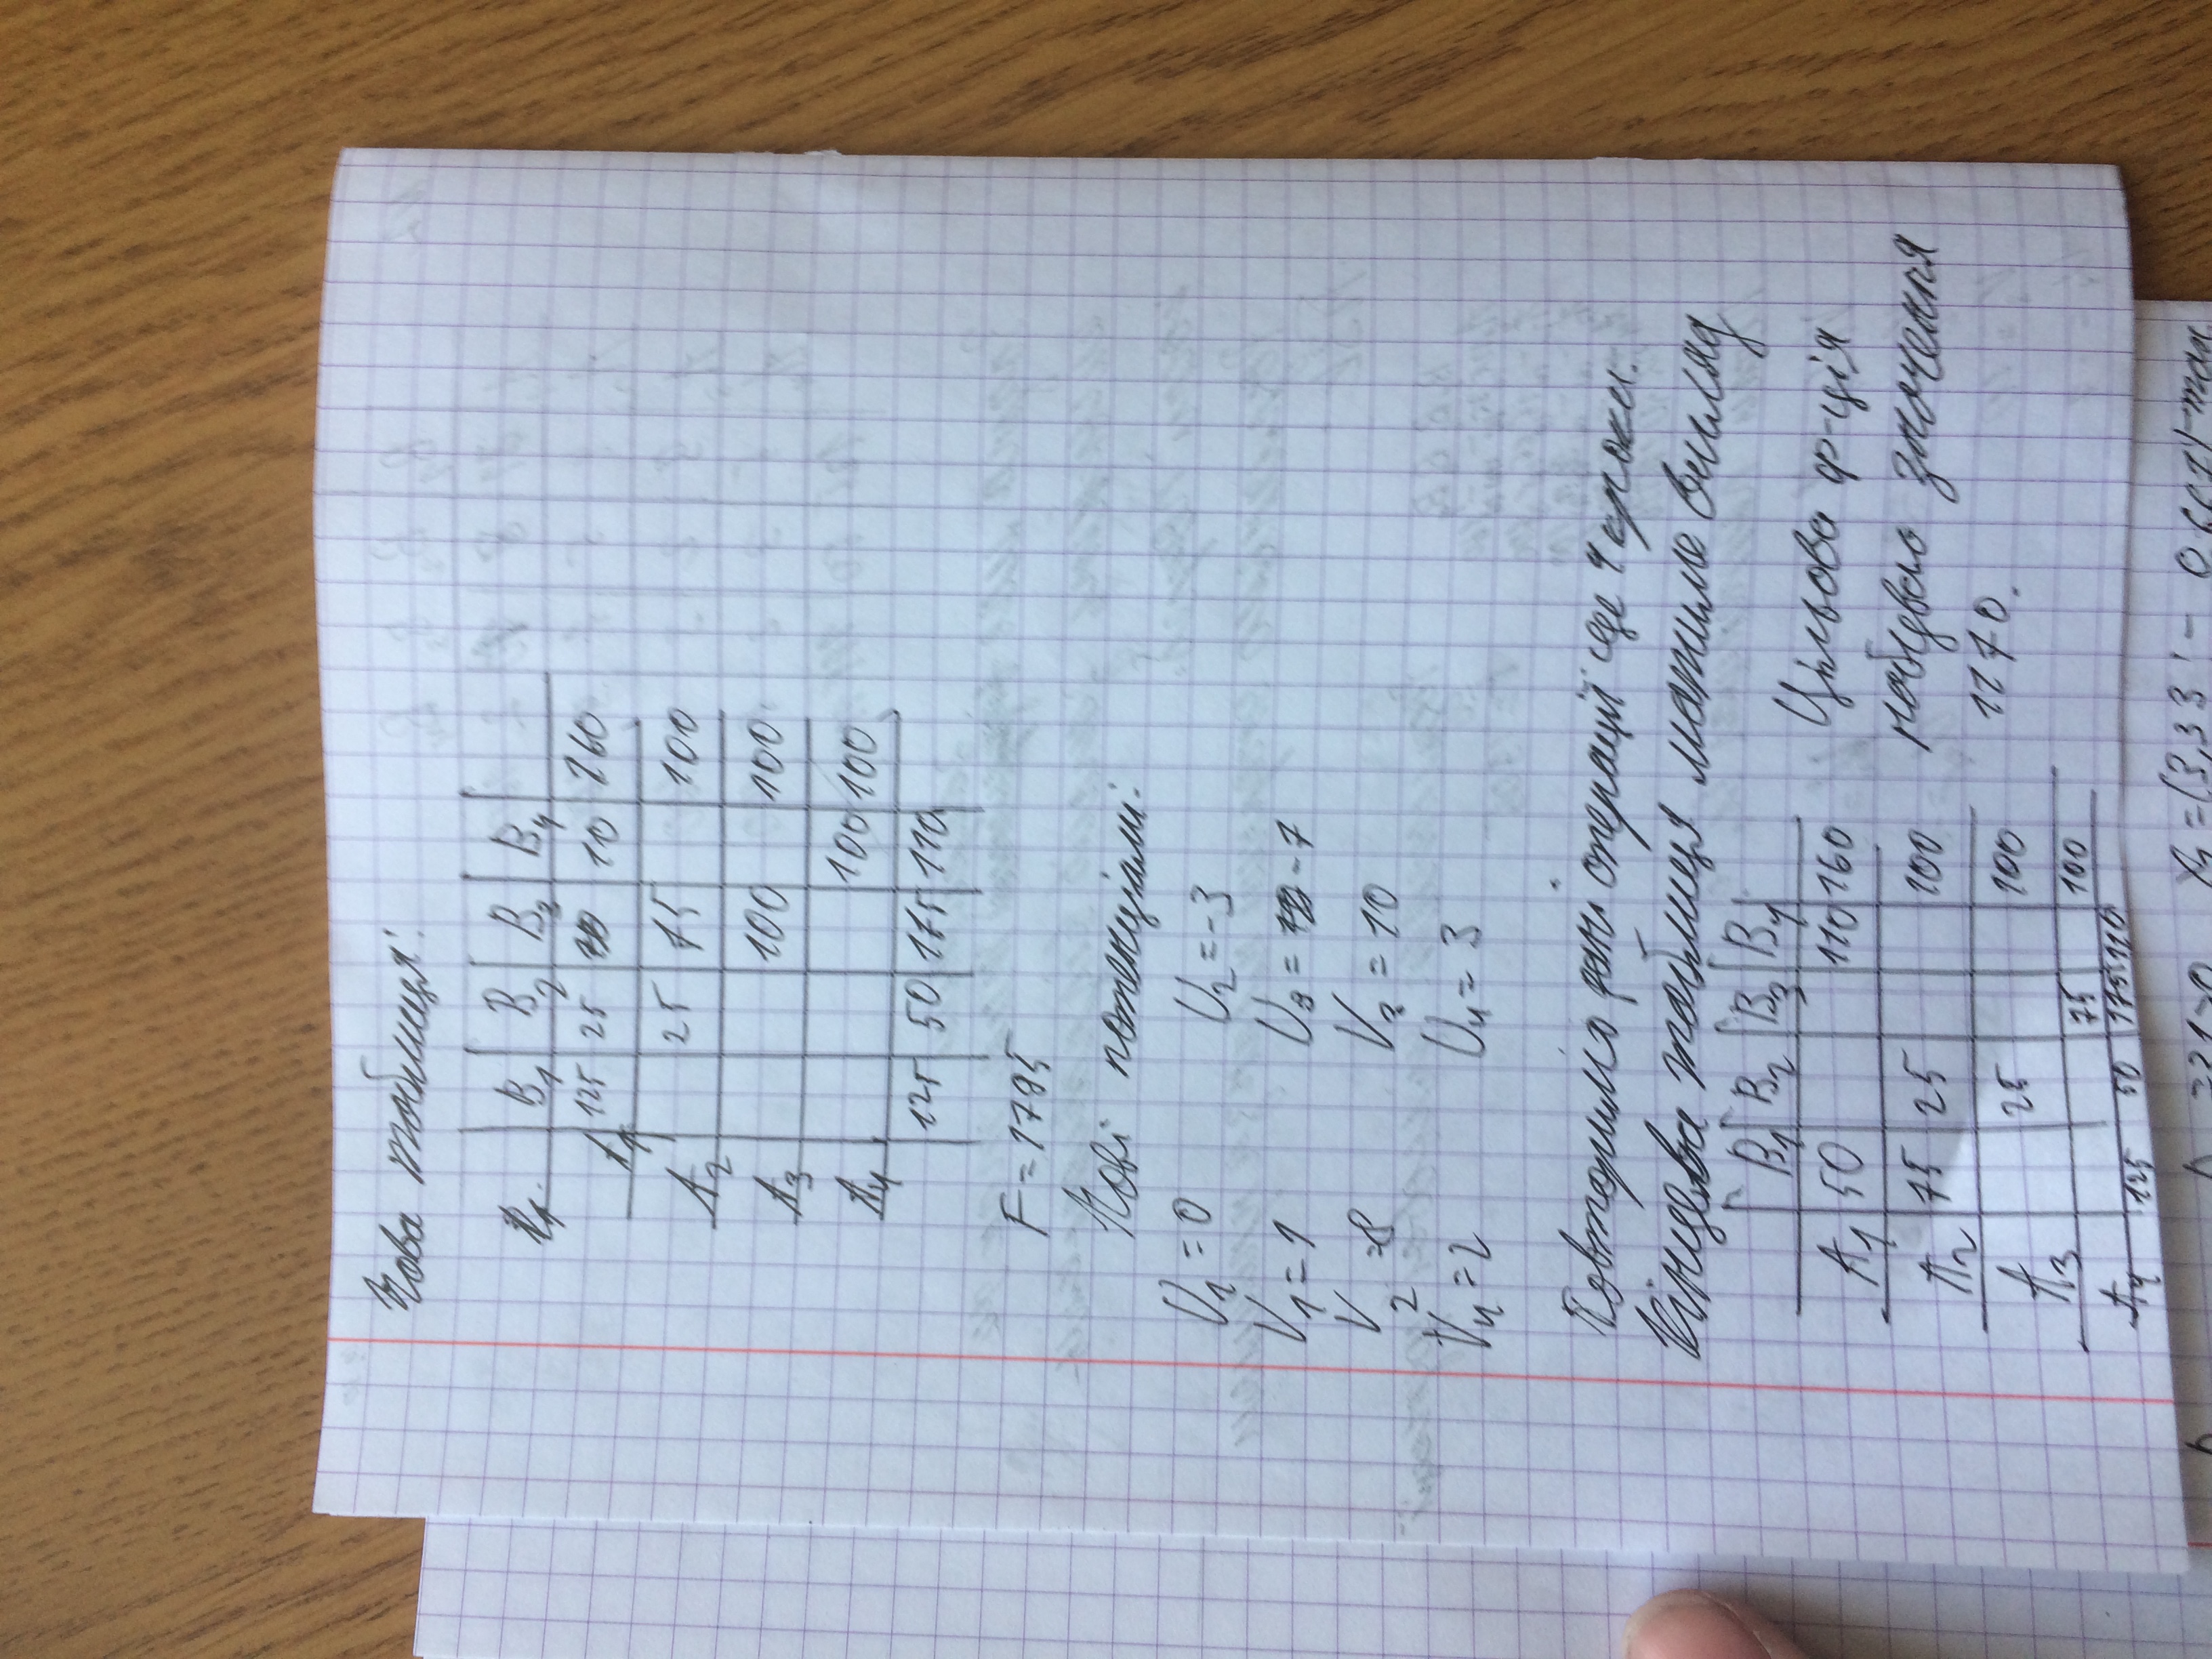 Нова таблиця:
B1 B2 B3 B4
A1 125 25 10 160
A2 25 75 100
A3 100 100
A4 100 100
125 50 175 110
F = 1795
Нові потенціали:
U1 = 0 U2 = -3
V1 = 1 U3 = -7
V2 = 8 V3 = 10
V4 = 2 U4 = 3
Повторимо дані операції ще 4 кроки.
Кінцева таблиця матиме вигляд
B1 B2 B3 B4
A1 50 110 160
A2 75 25 100
A3 25 100
75 100
A4 125 50 175 110
Цільова ф-ція
набувало значення
1170.
= (3,33